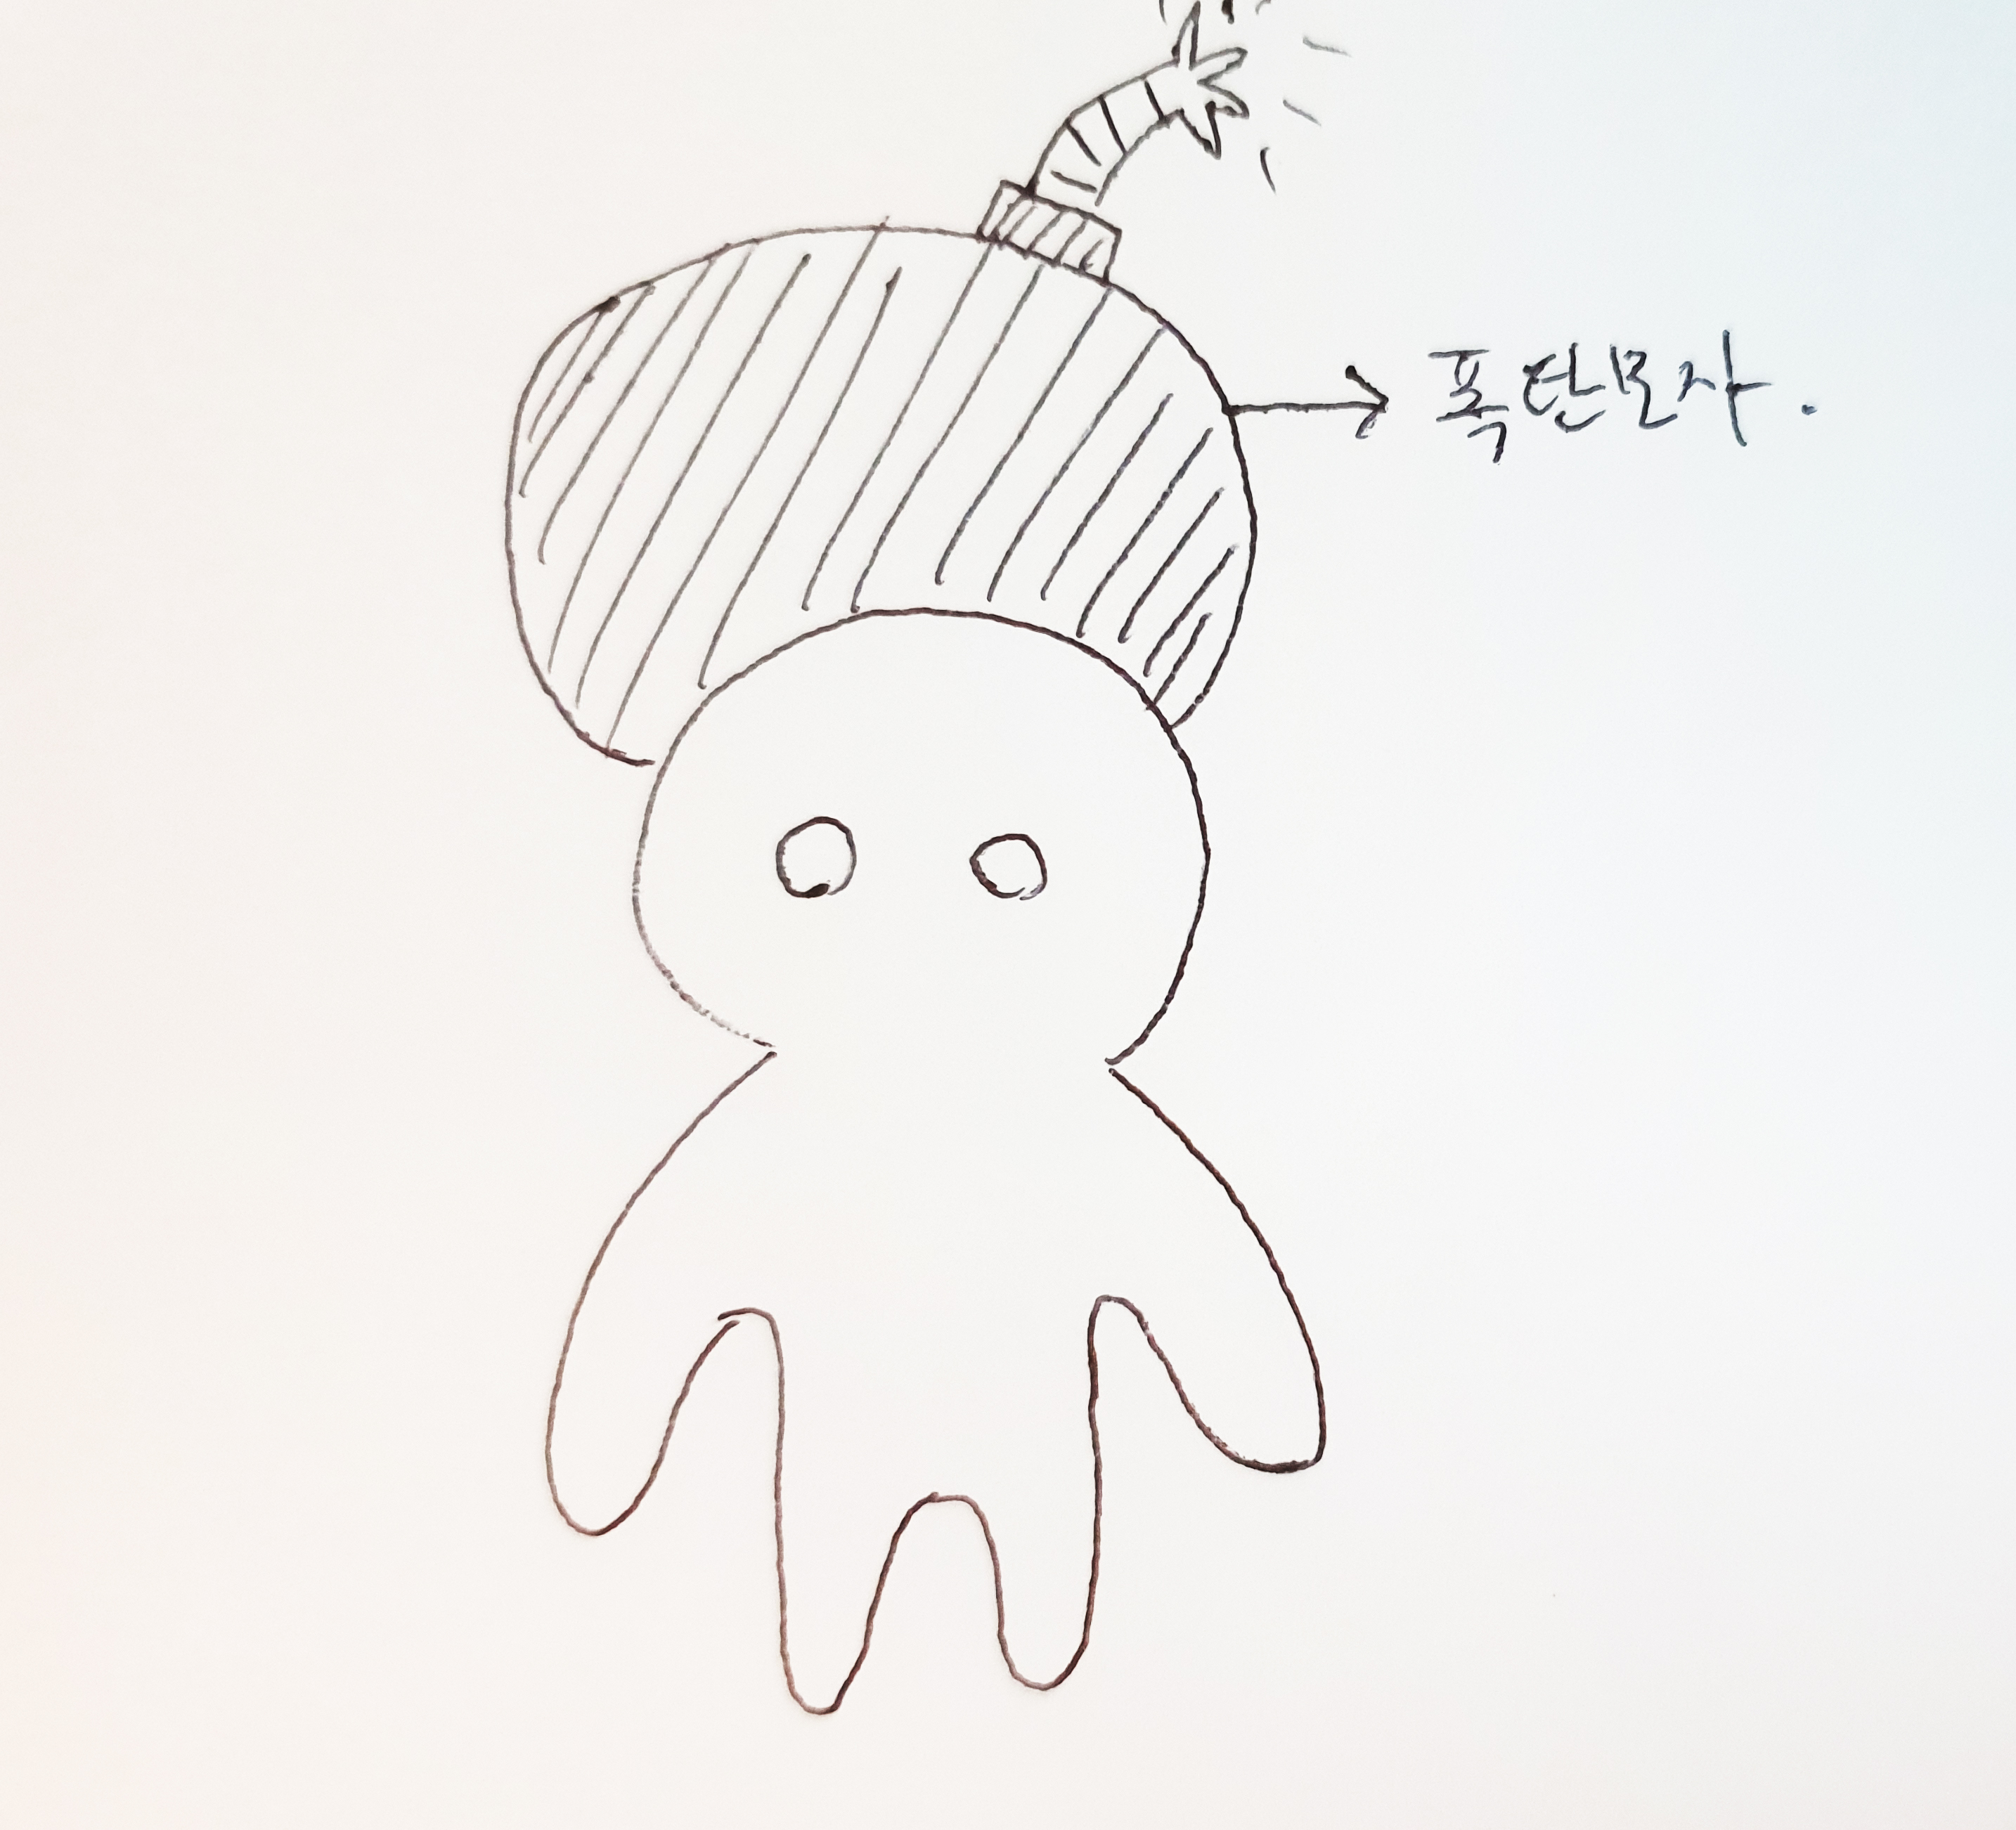 폭탄모자.